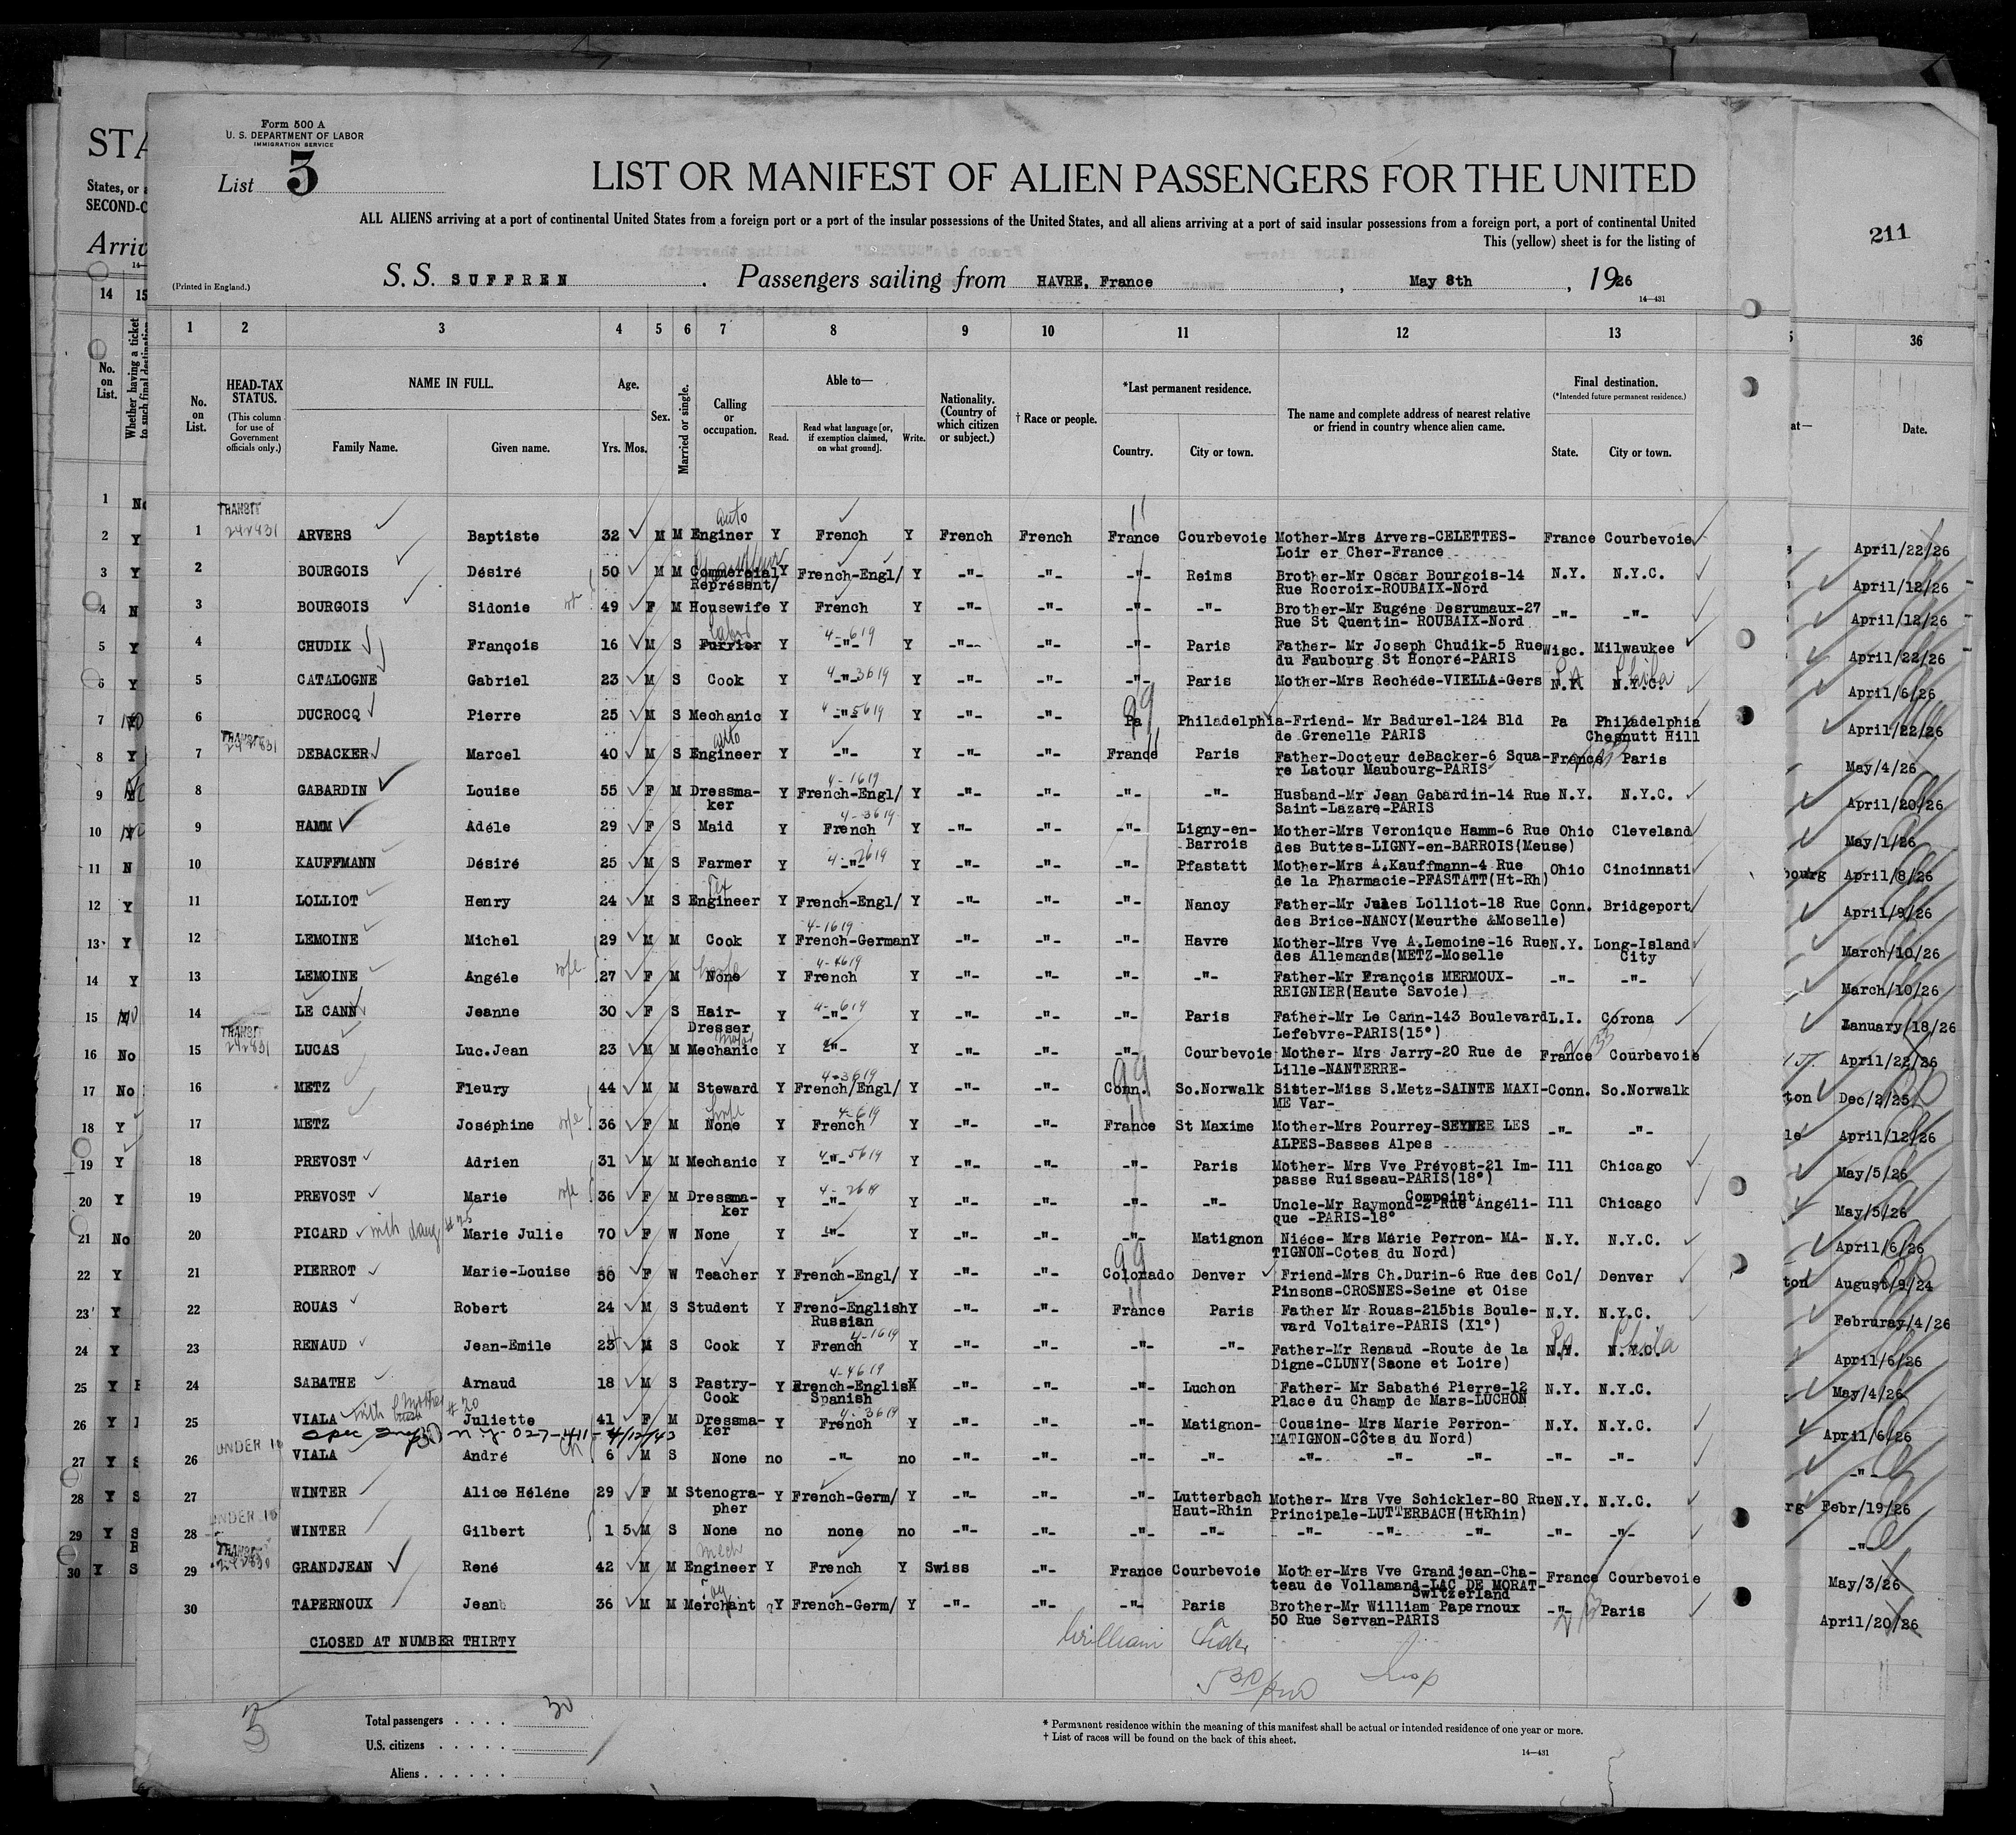 Form 500 A
U. S. DEPARTMENT OF LABOR
IMMIGRATION SERVICE
List 3
LIST OR MANIFEST OF ALIEN PASSENGERS FOR THE UNITED
ALL ALIENS arriving at a port of continental United States from a foreign port or a port of the insular possessions of the United States, and all aliens arriving at a port of said insular possessions from a foreign port, a port of continental United
This (yellow) sheet is for the listing of
STA
States, or a
SECOND-C
Arriv
211
(Printed in England.)
S. S. SUFFREN. Passengers sailing from HAVRE, France, May 8th, 1926
14—431
14 15
1 2 3 4 5 6 7 8 9 10 11 12 13 36
No. on List.
Whether having a ticket to such final destination
No. on List.
HEAD-TAX STATUS.
(This column for use of Government officials only.)
NAME IN FULL.
Family Name. Given name.
Age.
Yrs. Mos.
Sex.
Married or single.
Calling or occupation.
Able to—
Read. Read what language [or, if exemption claimed, on what ground]. Write.
Nationality. (Country of which citizen or subject.)
† Race or people.
*Last permanent residence.
Country. City or town.
The name and complete address of nearest relative or friend in country whence alien came.
Final destination.
(*Intended future permanent residence.)
State. City or town.
at—
Date.
TRANSIT
auto
1 ARVERS Baptiste 32 M M Enginer Y French Y French French France Courbevoie Mother-Mrs Arvers-CELETTES- France Courbevoie April/22/26
Loir er Cher-France
2 BOURGOIS Désiré 50 M M Commercial Y French-Engl/ Y -"- -"- -"- Reims Brother-Mr Oscar Bourgois-14 N.Y. N.Y.C. April/12/26
Représent/ Rue Rocroix-ROUBAIX-Nord
3 BOURGOIS Sidonie wfe 49 F M Housewife Y French Y -"- -"- -"- -"- Brother-Mr Eugéne Desrumaux-27 -"- -"- April/12/26
Rue St Quentin- ROUBAIX-Nord
4 CHUDIK François 16 M S Furrier Y -"- 4-619 Y -"- -"- -"- Paris Father- Mr Joseph Chudik-5 Rue Wisc. Milwaukee April/22/26
du Faubourg St Honoré-PARIS
5 CATALOGNE Gabriel 23 M S Cook Y -"- 4-3619 Y -"- -"- -"- Paris Mother-Mrs Rechéde-VIELLA-Gers N.Y. N.Y.C. PA Phila April/6/26
6 DUCROCQ Pierre 25 M S Mechanic Y -"- 4-5619 Y -"- -"- Pa 99 Philadelphia-Friend- Mr Badurel-124 Bld Pa Philadelphia April/22/26
de Grenelle PARIS Chesnutt Hill
TRANSIT
auto
7 DEBACKER Marcel 40 M S Engineer Y -"- Y -"- -"- France Paris Father-Docteur deBacker-6 Squa- France Paris May/4/26
re Latour Maubourg-PARIS
8 GABARDIN Louise 55 F M Dressma- Y French-Engl/ 4-1619 Y -"- -"- -"- -"- Husband-Mr Jean Gabardin-14 Rue N.Y. N.Y.C. April/20/26
ker Saint-Lazare-PARIS
9 HAMM Adéle 29 F S Maid Y French 4-3619 Y -"- -"- -"- Ligny-en- Mother-Mrs Veronique Hamm-6 Rue Ohio Cleveland May/1/26
Barrois des Buttes-LIGNY-en-BARROIS(Meuse)
10 KAUFFMANN Désiré 25 M S Farmer Y -"- 4-2619 Y -"- -"- -"- Pfastatt Mother-Mrs A.Kauffmann-4 Rue Ohio Cincinnati bourg April/8/26
de la Pharmacie-PFASTATT(Ht-Rh)
Tex
11 LOLLIOT Henry 24 M S Engineer Y French-Engl/ Y -"- -"- -"- Nancy Father-Mr Jules Lolliot-18 Rue Conn. Bridgeport April/9/26
des Brice-NANCY(Meurthe &Moselle)
12 LEMOINE Michel 29 M M Cook Y French-German 4-1619 Y -"- -"- -"- Havre Mother-Mrs Vve A.Lemoine-16 Rue N.Y. Long-Island March/10/26
des Allemands(METZ-Moselle City
13 LEMOINE Angéle wfe 27 F M None Y French 4-4619 Y -"- -"- -"- -"- Father-Mr François MERMOUX- -"- -"- March/10/26
REIGNIER(Haute Savoie)
14 LE CANN Jeanne 30 F S Hair- Y -"- 4-619 Y -"- -"- -"- Paris Father-Mr Le Cann-143 Boulevard L.I. Corona January/18/26
Dresser Lefebvre-PARIS(15°)
TRANSIT
motor
15 LUCAS Luc.Jean 23 M M Mechanic Y -"- Y -"- -"- -"- Courbevoie Mother- Mrs Jarry-20 Rue de France Courbevoie April/22/26
Lille-NANTERRE-
16 METZ Fleury 44 M M Steward Y French/Engl/ 4-3619 Y -"- -"- Conn. 99 So.Norwalk Sister-Miss S.Metz-SAINTE MAXI- Conn. So.Norwalk ton Dec/2/25
ME Var-
17 METZ Joséphine wfe 36 F M None Y French 4-619 Y -"- -"- France St Maxime Mother-Mrs Pourrey-SEYNEE LES -"- -"- le April/12/26
ALPES-Basses Alpes
18 PREVOST Adrien 31 M M Mechanic Y -"- 4-5619 Y -"- -"- -"- Paris Mother- Mrs Vve Prévost-21 Im- Ill Chicago May/5/26
passe Ruisseau-PARIS(18°)
19 PREVOST Marie wfe 36 F M Dressma- Y -"- 4-2619 Y -"- -"- -"- -"- Uncle-Mr Raymond Compoint-2 Rue Angéli- Ill Chicago May/5/26
ker que -PARIS-18°
20 PICARD with daug #25 Marie Julie 70 F W None Y -"- Y -"- -"- -"- Matignon Niéce- Mrs Marie Perron- MA- N.Y. N.Y.C. April/6/26
TIGNON-Cotes du Nord)
21 PIERROT Marie-Louise 50 F W Teacher Y French-Engl/ Y -"- -"- Colorado 99 Denver Friend-Mrs Ch.Durin-6 Rue des Col/ Denver ton August/9/24
Pinsons-CROSNES-Seine et Oise
22 ROUAS Robert 24 M S Student Y Frenc-English Y -"- -"- France Paris Father Mr Rouas-215bis Boule- N.Y. N.Y.C. Februray/4/26
Russian vard Voltaire-PARIS (XI°)
23 RENAUD Jean-Emile 23 M S Cook Y French 4-1619 Y -"- -"- -"- -"- Father-Mr Renaud -Route de la N.Y. N.Y.C. PA Phila April/6/26
Digne-CLUNY(Saone et Loire)
24 SABATHE Arnaud 18 M S Pastry- Y French-English 4-4619 Y -"- -"- -"- Luchon Father- Mr Sabathé Pierre-12 N.Y. N.Y.C. May/4/26
Cook Spanish Place du Champ de Mars-LUCHON
25 VIALA with mother #20 Juliette 41 F M Dressma- Y French 4-3619 Y -"- -"- -"- Matignon- Cousine- Mrs Marie Perron- N.Y. N.Y.C. April/6/26
ker MATIGNON-Côtes du Nord)
UNDER 16
26 VIALA André ch 6 M S None no -"- no -"- -"- -"- -"- -"- -"- -"- -"- -"- -"-
27 WINTER Alice Héléne 29 F M Stenogra- Y French-Germ/ Y -"- -"- -"- Lutterbach Mother- Mrs Vve Schickler-80 Rue N.Y. N.Y.C. rg Febr/19/26
pher Haut-Rhin Principale-LUTTERBACH(HtRhin)
UNDER 16
28 WINTER Gilbert 1 5 M S None no none no -"- -"- -"- -"- -"- -"- -"- -"- -"- -"-
TRANSIT
mech
29 GRANDJEAN René 42 M M Engineer Y French Y Swiss -"- France Courbevoie Mother-Mrs Vve Grandjean-Cha- France Courbevoie May/3/26
teau de Vollamand-LAC DE MORAT-
Switzerland
30 TAPERNOUX Jean 36 M M Merchant Y French-Germ/ Y -"- -"- -"- Paris Brother-Mr William Papernoux -"- Paris April/20/26
50 Rue Servan-PARIS
CLOSED AT NUMBER THIRTY
William
Insp
Total passengers . . . . 30
U.S. citizens . . . . .
Aliens . . . . . .
* Permanent residence within the meaning of this manifest shall be actual or intended residence of one year or more.
† List of races will be found on the back of this sheet.
14—431